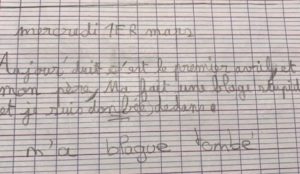 mercredi 1ER mars
Aujour'duit c'est le premier avril et
mon père, Ma fait une blage stupid
et je suis tonbée dedans.
m'a blague tombé